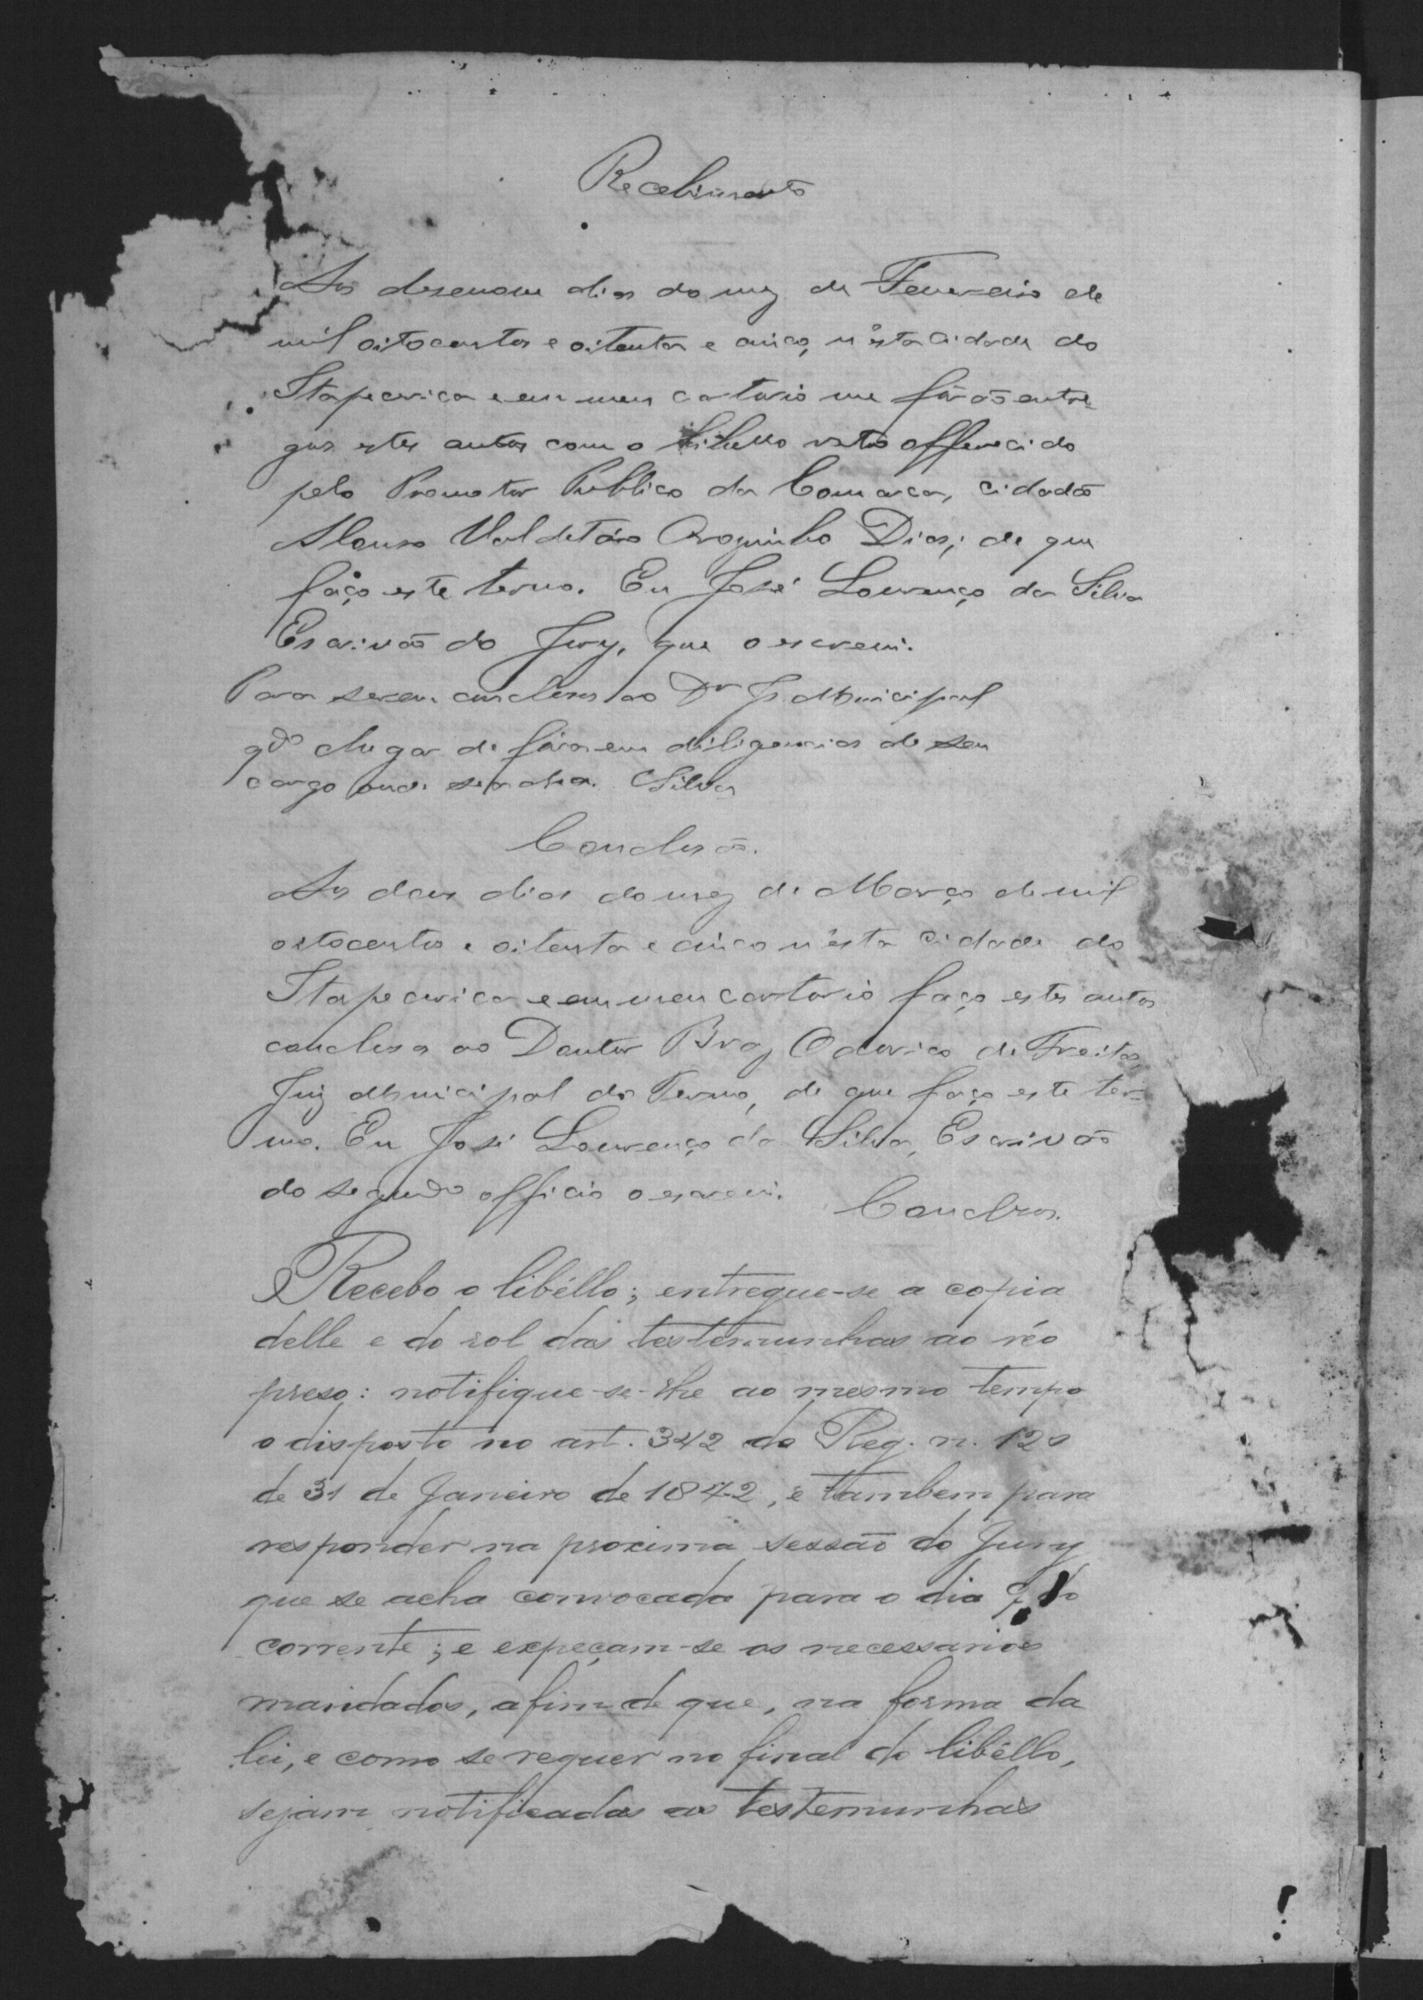 Recebimento
Aos desenove dias do mez de Fevereiro de
mil oitocentos e oitenta e cinco, n'esta Cidade do
Itapecerica e em meu cartorio me fôrão entre-
gues estes autos com o libello retro offerecido
pelo Promotor Publico da Comarca, cidadão
Alonso Valdetáro Dias; de que
faço este termo. Eu José Lourenço da Silva
Escrivão do Jury, que o escrevi.
Para serem conclusos ao Dr Js Municipal
qdo chegar de fóra em diligencias de seu
cargo onde se acha. Silva
Conclusão.
Aos dous dias do mez de Março de mil
oitocentos e oitenta e cinco n'esta cidade do
Itapecerica e em meu cartorio faço estes autos
conclusos ao Doutor Braz Odorico de Freitas,
Juiz Municipal do Termo, de que faço este ter-
mo. Eu José Lourenço da Silva, Escrivão
do segundo officio o escrevi. Conclusos.
Recebo o libéllo; entregue-se a copia
delle e do rol das testemunhas ao réo
preso: notifique-se-lhe ao mesmo tempo
o disposto no art. 342 do Reg. n. 120
de 31 de Janeiro de 1842, e tambem para
responder na proxima sessão do Jury
que se acha convocada para o dia 9 do
corrente; e expeçam-se os necessarios
mandados, afim de que, na forma da
lei, e como se requer no final do libéllo,
sejam notificadas as testemunhas